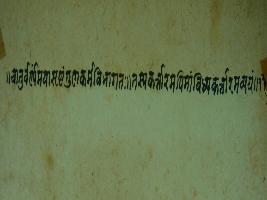 ॥चातुर्वर्ण्यंमयासृष्टंगुणकर्मविभागशः॥तस्यकर्त्तारमपिमांविध्यकर्त्तारमव्ययं॥